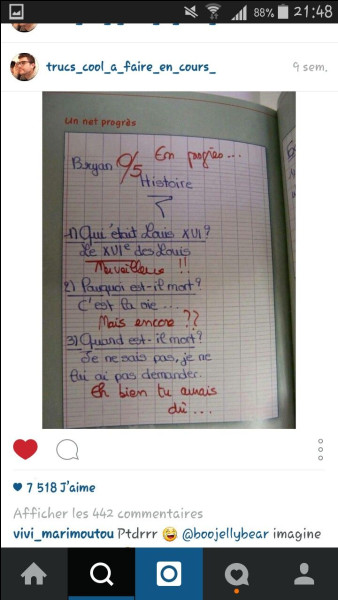 88% 21:48
trucs_cool_a_faire_en_cours_
9 sem.
Un net progrès
Bryan 0/5 En progrès...
Histoire
1) Qui était Louis XVI?
Le XVIe des Louis
Merveilleux !!
2) Pourquoi est-il mort?
C'est la vie...
Mais encore ??
3) Quand est-il mort?
Je ne sais pas, je ne
lui ai pas demandé.
Eh bien tu aurais
dû...
7 518 J'aime
Afficher les 442 commentaires
vivi_marimoutou Ptdrrr 😄 @boojellybear imagine